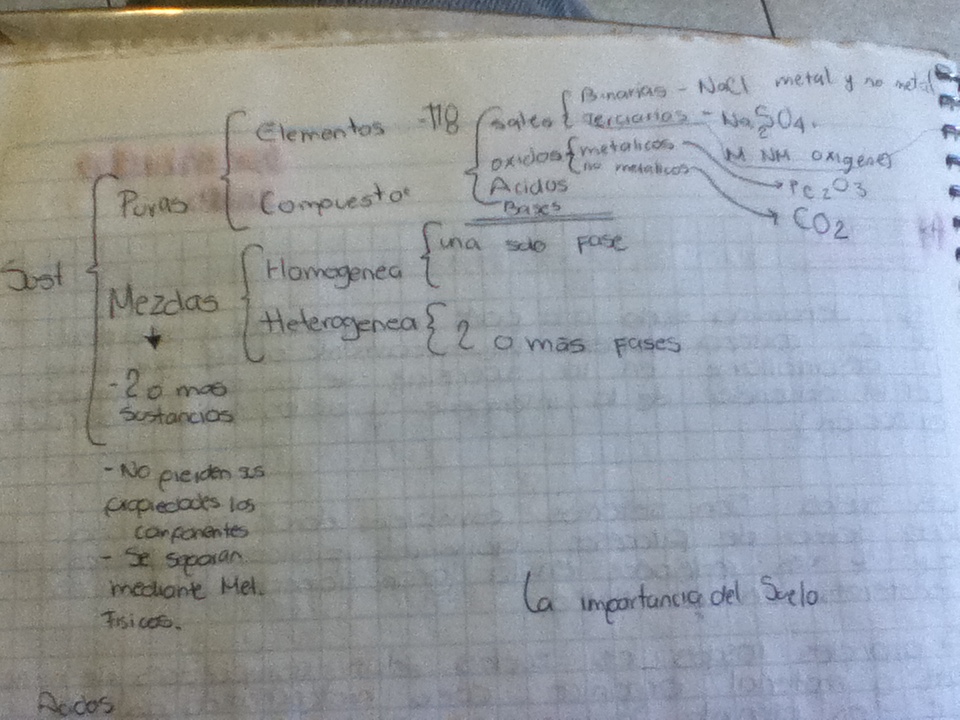 Binarias - NaCl metal y no metal
Elementos - 118
Sales
terciarias - Na2SO4.
oxidos
metalicos
M NM oxigeno
no metalicos
Fe2O3
Puras
Compuesto
Acidos
CO2
Bases
Sust
Homogenea
una solo fase
Mezclas
Heterogenea
2 o más fases
- 2 o mas
sustancias
- No pierden sus
propiedades los
componentes
- Se separan
mediante Met.
Fisicos.
La importancia del Suelo
Acidos